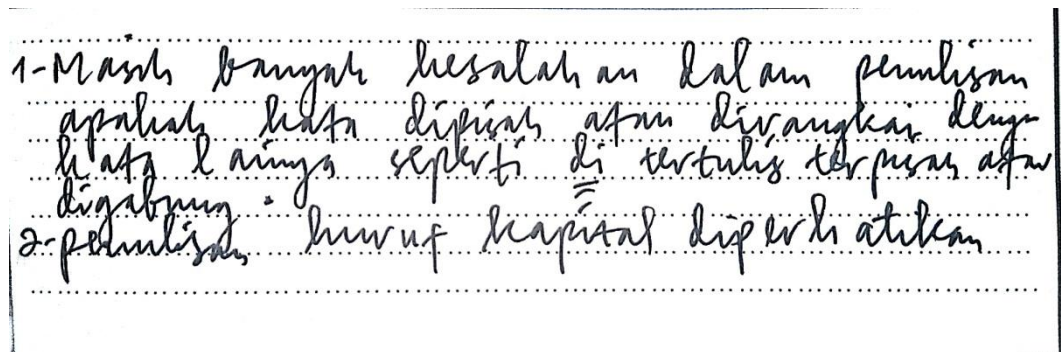 1-Masih banyak kesalahan dalam penulisan
apakah kata dipisah atau dirangkai denga
kata lainya seperti di tertulis terpisah atau
digabung.
2-penulisan huruf kapital diperhatikan